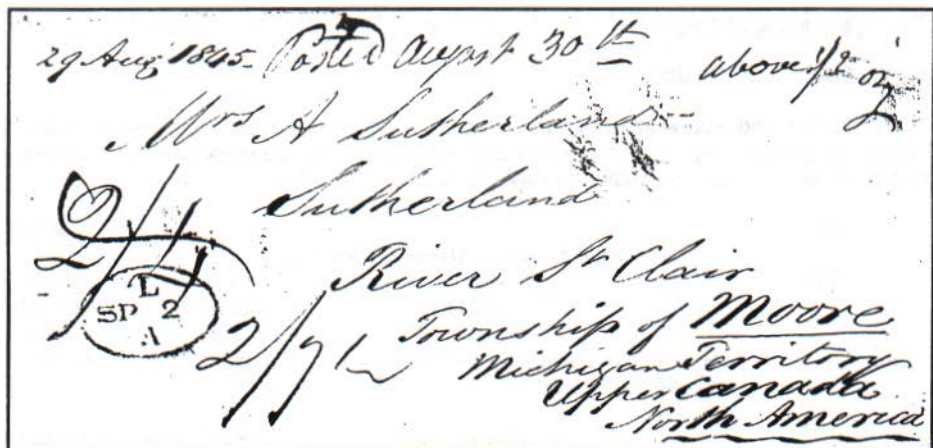 29 Aug 1845 Posted August 30th above 1/2 oz
Mrs A Sutherland
Sutherland
River St Clair
Township of Moore
Michigan Territory
Upper Canada
North America
L
SP 2
A